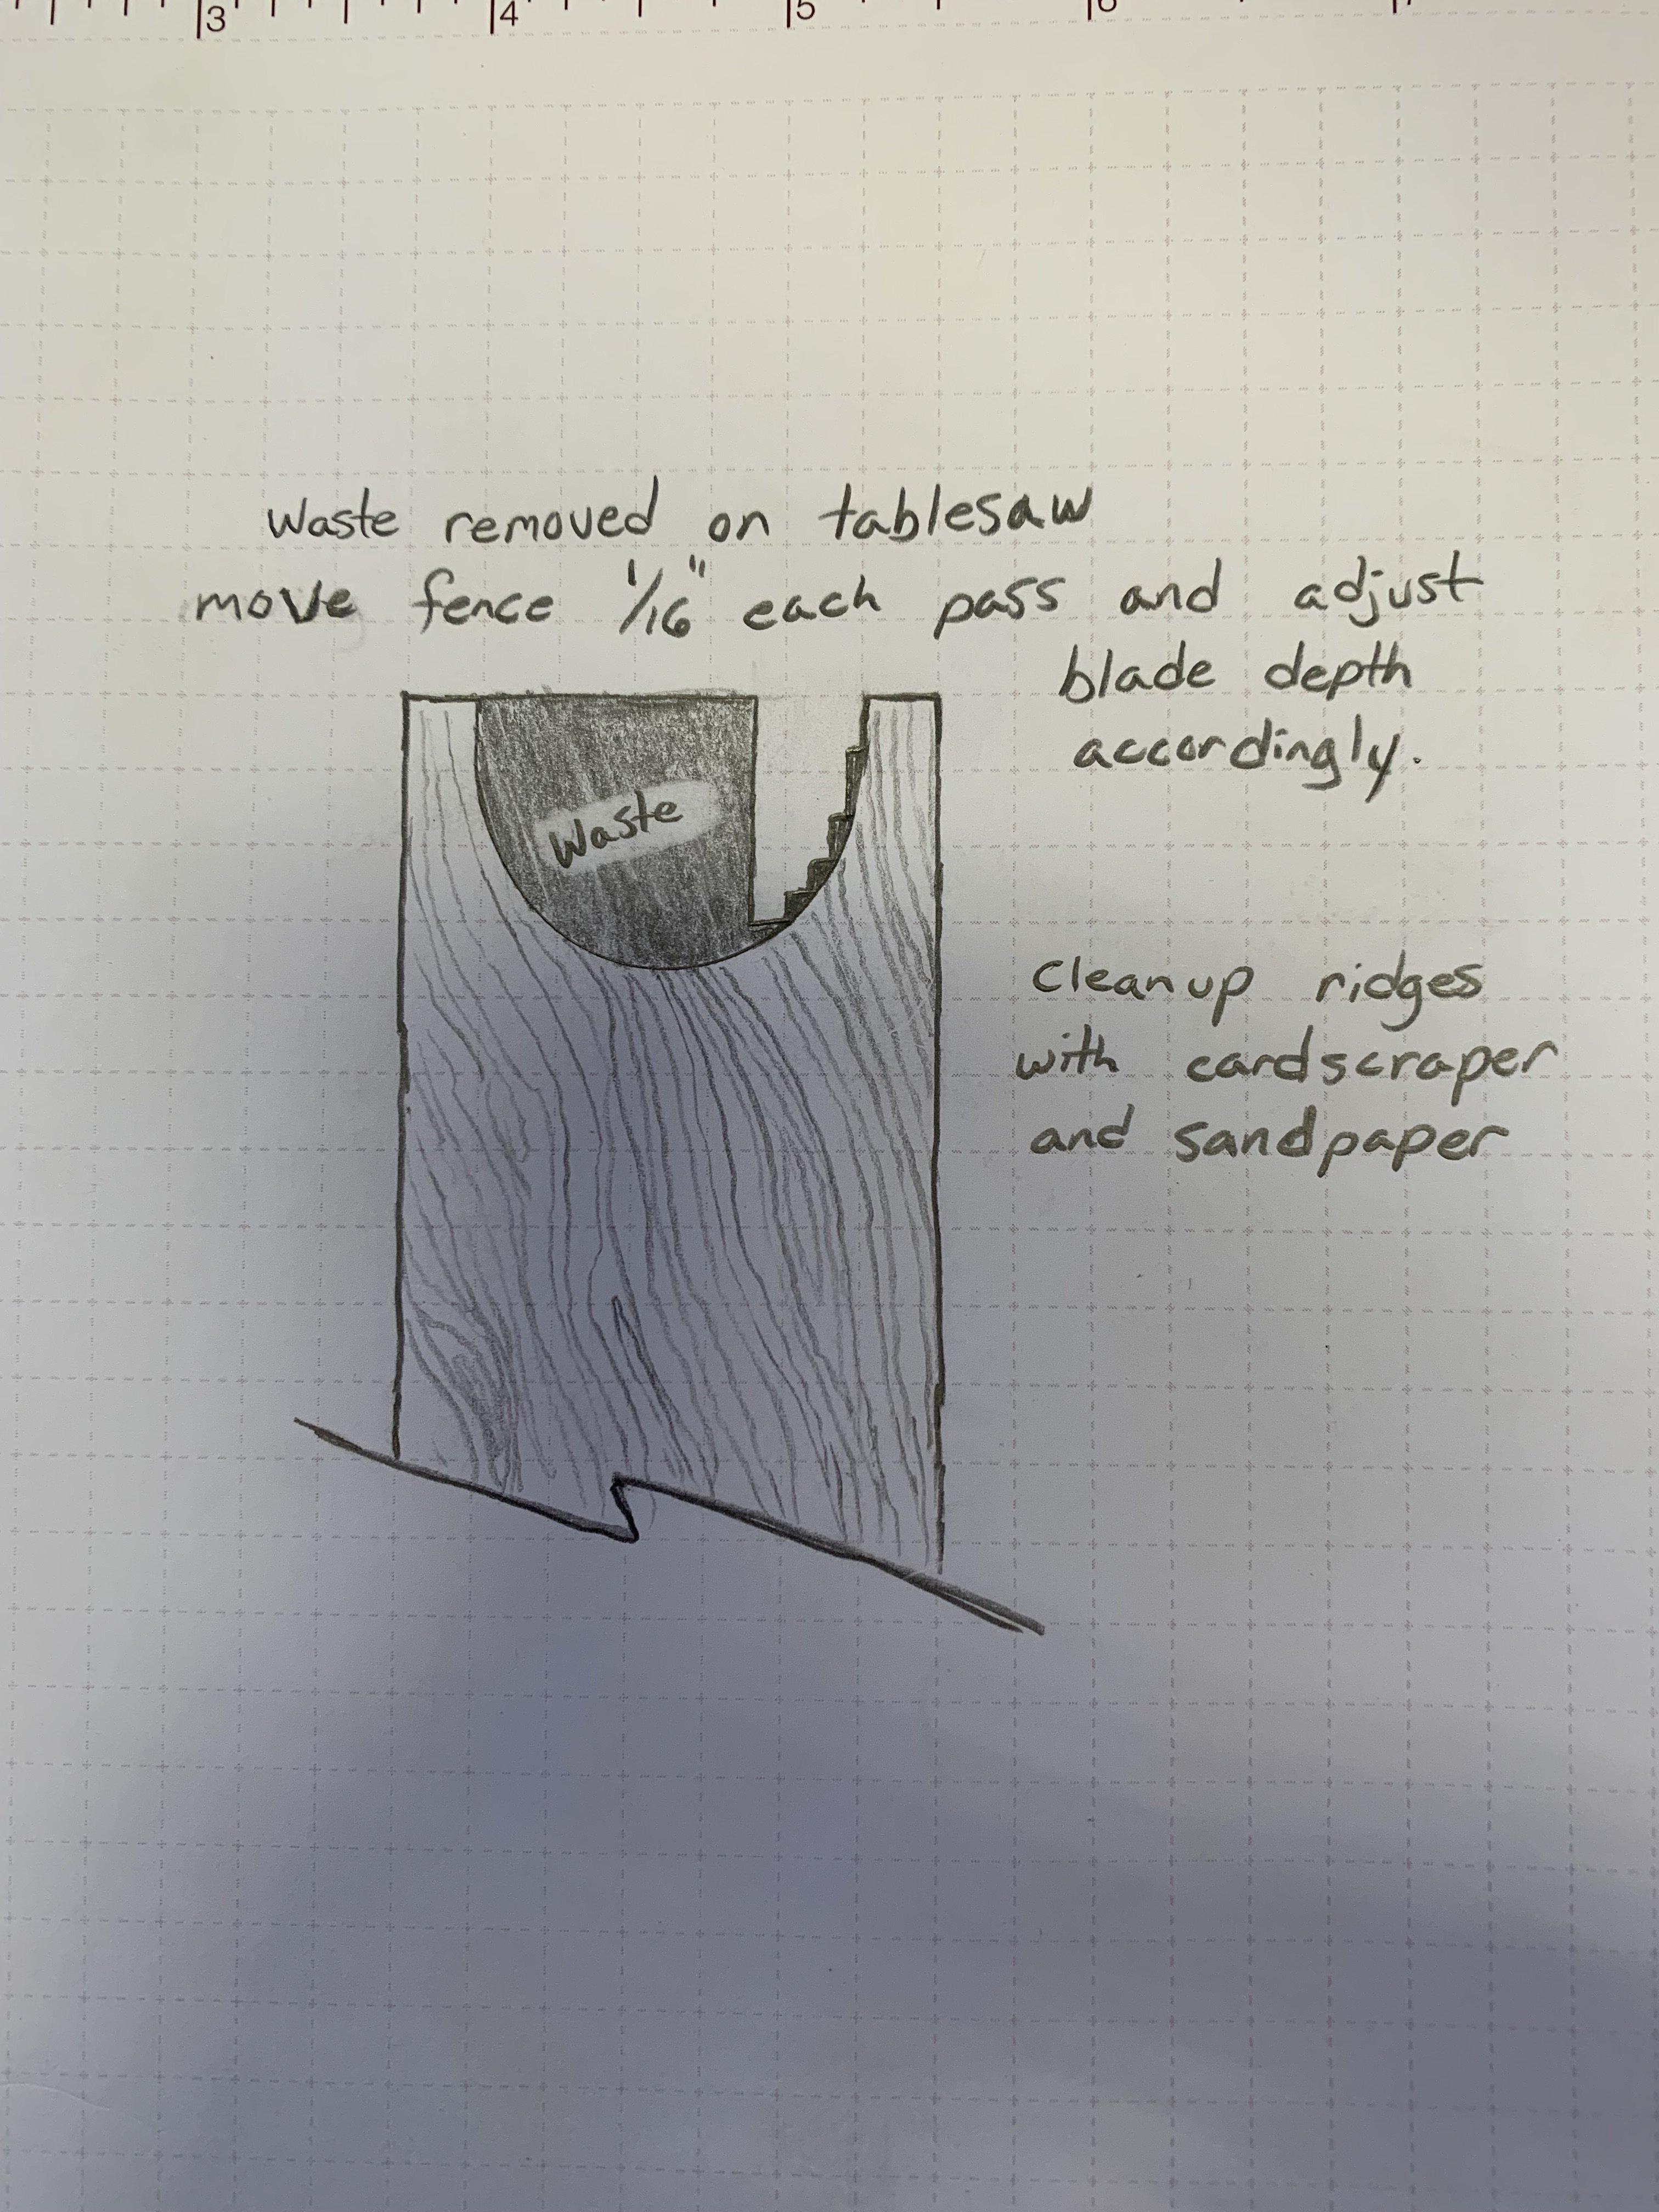 3 4 5 6 7
Waste removed on tablesaw
move fence 1/16" each pass and adjust
blade depth
accordingly.
Waste
Cleanup ridges
with cardscraper
and sandpaper